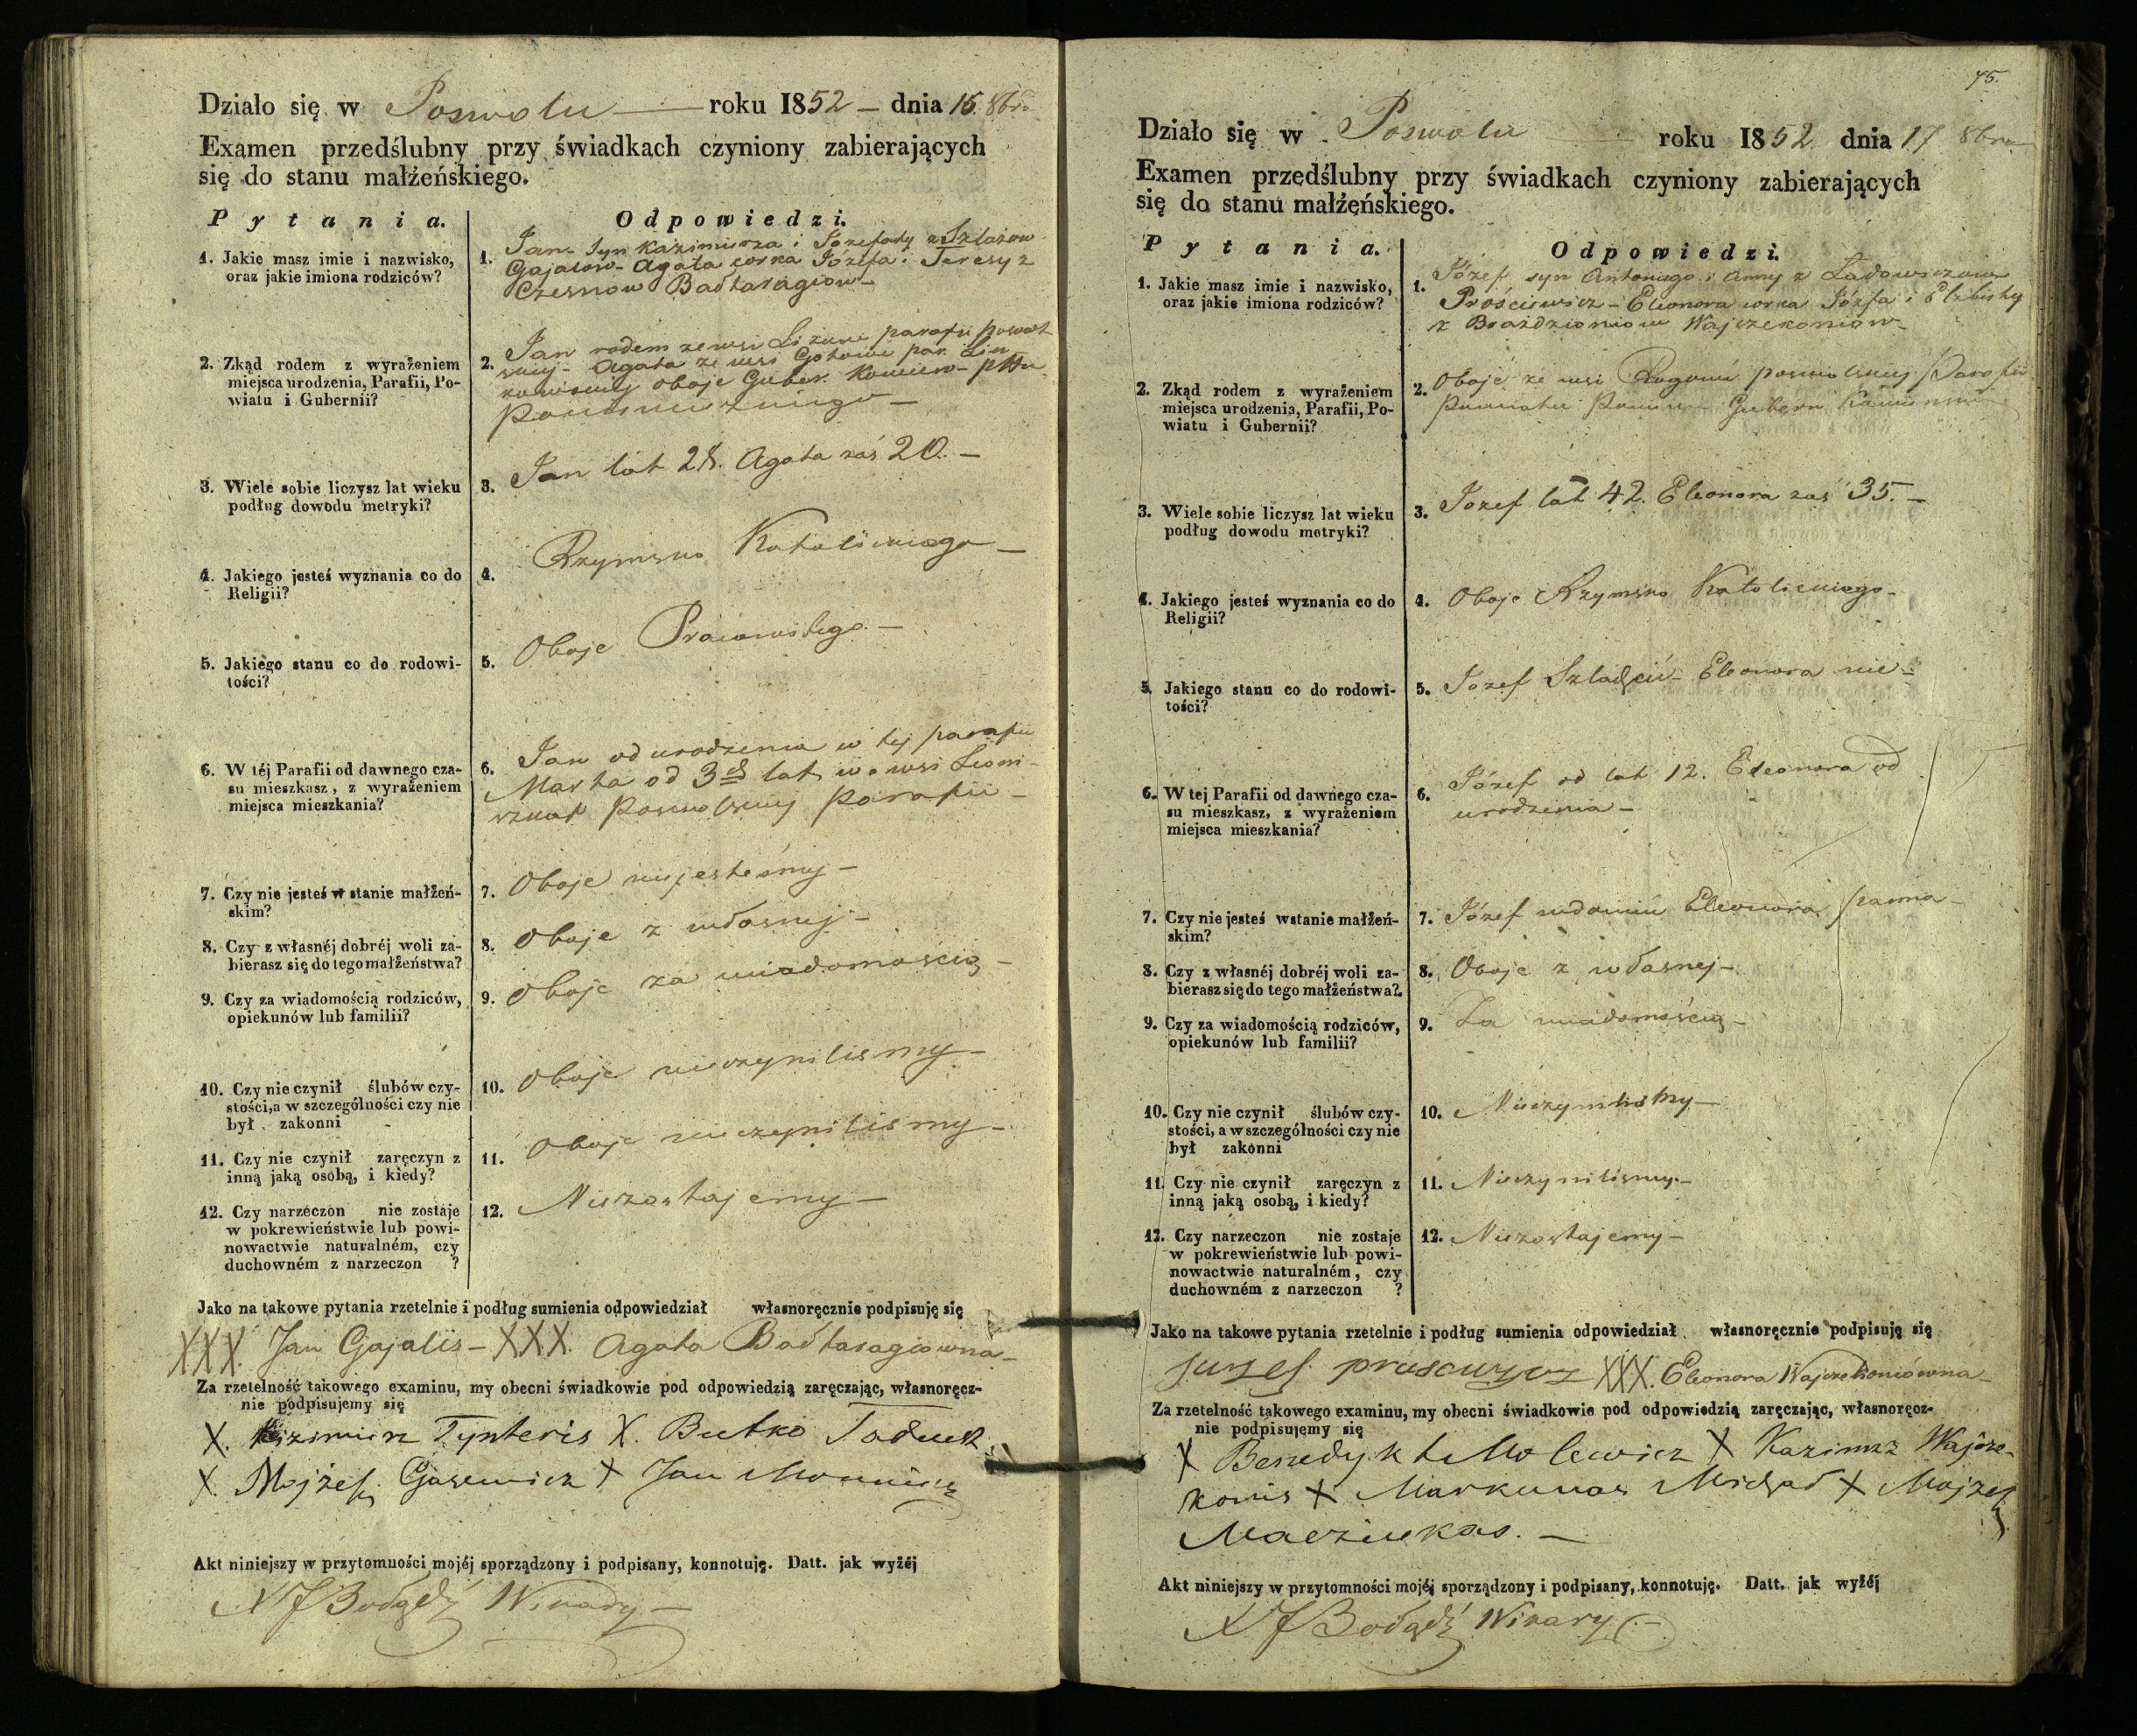 Działo się w Poswolu — roku 1852 — dnia 15. 8bra
Examen przedślubny przy świadkach czyniony zabierających
się do stanu małżeńskiego.
Pytania.
Odpowiedzi.
1. Jakie masz imie i nazwisko,
oraz jakie imiona rodziców?
1. Jan Syn Kazimierza i Jozefaty z
Gajalow - Agata corka Józefa i Teresy z
Czesnow Bałtaragiow -
2. Zkąd rodem z wyrażeniem
miejsca urodzenia, Parafii, Po-
wiatu i Gubernii?
2. Jan rodem ze wsi parafii
Agata ze wsi par.
oboje Guber. Kowien - pttu
3. Wiele sobie liczysz lat wieku
podług dowodu metryki?
3. Jan lat 28. Agata zaś 20. —
4. Jakiego jesteś wyznania co do
Religii?
4. Rzymsko Katolickiego —
5. Jakiego stanu co do rodowi-
tości?
5. Oboje —
6. W téj Parafii od dawnego cza-
su mieszkasz, z wyrażeniem
miejsca mieszkania?
6. Jan od urodzenia w tej parafii
Marta od 3ch lat we wsi
Poswolskiej Parafii —
7. Czy nie jesteś w stanie małżeń-
skim?
7. Oboje niejesteśmy —
8. Czy z własnéj dobréj woli za-
bierasz się do tego małżeństwa?
8. Oboje z własnej —
9. Czy za wiadomością rodziców,
opiekunów lub familii?
9. Oboje za wiadomością —
10. Czy nie czynił ślubów czy-
stości, a w szczególności czy nie
był zakonni
10. Oboje nieczynilismy —
11. Czy nie czynił zaręczyn z
inną jaką osobą, i kiedy?
11. Oboje nieczynilismy —
12. Czy narzeczon nie zostaje
w pokrewieństwie lub powi-
nowactwie naturalném, czy
duchowném z narzeczon ?
12. Niezostajemy —
Jako na takowe pytania rzetelnie i podług sumienia odpowiedział własnoręcznie podpisuję się
XXX. Jan Gajalis - XXX. Agata Bałtaragiowna —
Za rzetelność takowego examinu, my obecni świadkowie pod odpowiedzią zaręczając, własnoręcz-
nie podpisujemy się
X. Kazimierz Tynteris X. Butko Tadeusz
X. Mojżesz Gasewicz X Jan
Akt niniejszy w przytomności mojéj sporządzony i podpisany, konnotuję. Datt. jak wyżéj
X J Bołądź Wikary —
75.
Działo się w Poswolu roku 1852 dnia 17 8bra
Examen przedślubny przy świadkach czyniony zabierających
się do stanu małżeńskiego.
Pytania.
Odpowiedzi.
1. Jakie masz imie i nazwisko,
oraz jakie imiona rodziców?
1. Józef syn Antoniego i Anny z Ładowiczow
Prościewicz - Eleonora corka Józefa i Elżbiety
z Wajczekoniow -
2. Zkąd rodem z wyrażeniem
miejsca urodzenia, Parafii, Po-
wiatu i Gubernii?
2. Oboje ze wsi poswolskiej Parafii
Powiatu Guber
3. Wiele sobie liczysz lat wieku
podług dowodu metryki?
3. Jozef lat 42. Eleonora zaś 35. —
4. Jakiego jesteś wyznania co do
Religii?
4. Oboje Rzymsko Katolickiego -
5. Jakiego stanu co do rodowi-
tości?
5. Jozef Szlachcic - Eleonora nie -
6. W tej Parafii od dawnego cza-
su mieszkasz, z wyrażeniem
miejsca mieszkania?
6. Józef od lat 12. Eleonora od
urodzenia —
7. Czy nie jesteś wstanie małżeń-
skim?
7. Józef wdowiec Eleonora panna —
8. Czy z własnéj dobréj woli za-
bierasz się do tego małżeństwa?
8. Oboje z własnej —
9. Czy za wiadomością rodziców,
opiekunów lub familii?
9. Za wiadomością —
10. Czy nie czynił ślubów czy-
stości, a w szczególności czy nie
był zakonni
10. Nieczynilismy —
11. Czy nie czynił zaręczyn z
inną jaką osobą, i kiedy?
11. Nieczynilismy —
12. Czy narzeczon nie zostaje
w pokrewieństwie lub powi-
nowactwie naturalném, czy
duchowném z narzeczon ?
12. Niezostajemy —
Jako na takowe pytania rzetelnie i podług sumienia odpowiedział własnoręcznie podpisuję się
XXX. Eleonora Wajczekoniówna —
Za rzetelność takowego examinu, my obecni świadkowie pod odpowiedzią zaręczając, własnoręcz-
nie podpisujemy się
X Benedykt Molewicz X Kazimierz Wajcze-
konis X Markunas Michał X Mojżesz
Macziukas. —
Akt niniejszy w przytomności mojéj sporządzony i podpisany, konnotuję. Datt. jak wyżéj
X J Bołądź Wikary —